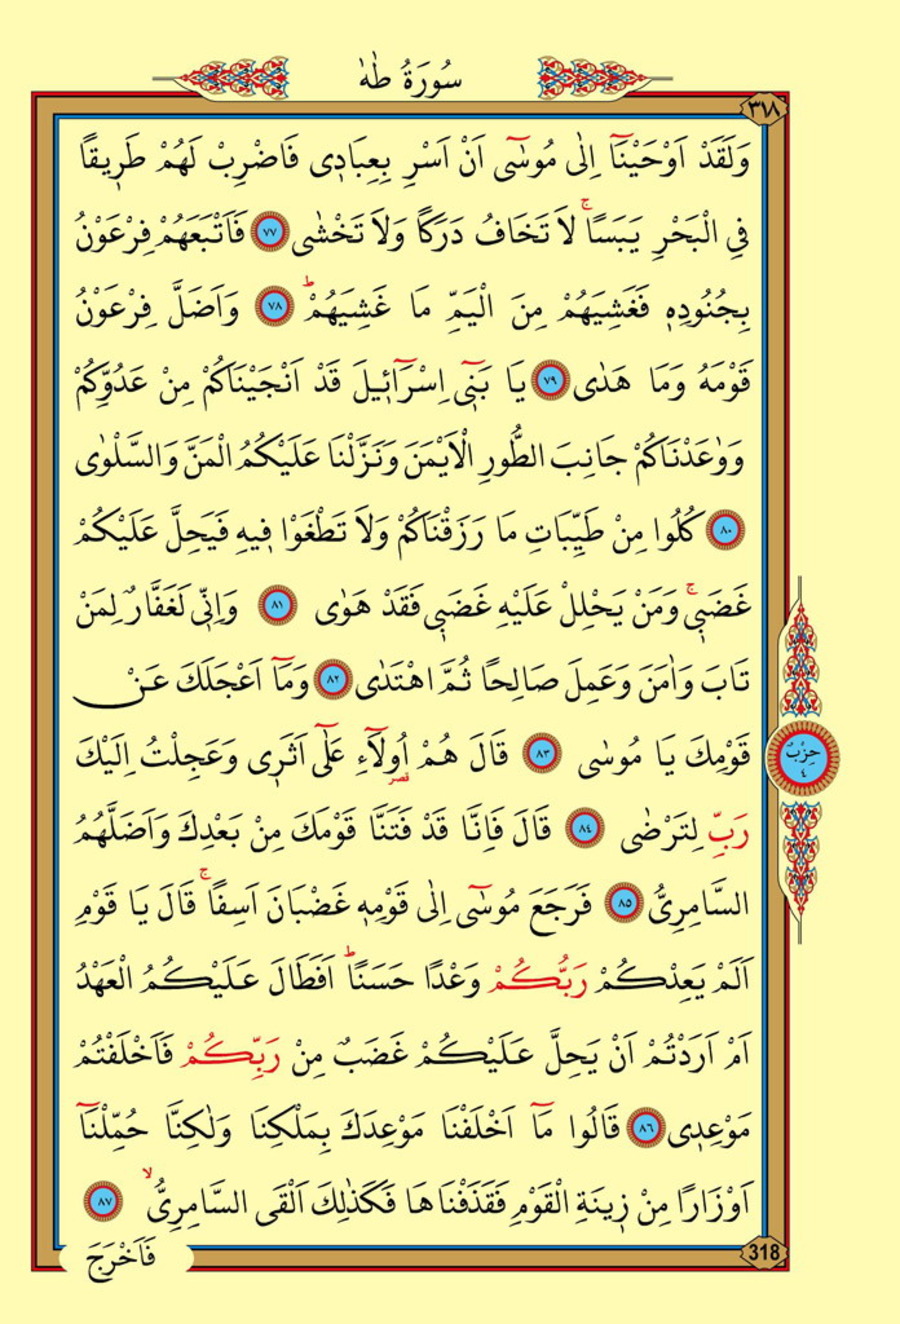 سُورَةُ طٰهٰ
٣١٨
وَلَقَدْ اَوْحَيْنَٓا اِلٰى مُوسٰٓى اَنْ اَسْرِ بِعِبَاد۪ى فَاضْرِبْ لَهُمْ طَر۪يقًا
فِى الْبَحْرِ يَبَسًاۚ لَا تَخَافُ دَرَكًا وَلَا تَخْشٰى ٧٧ فَاَتْبَعَهُمْ فِرْعَوْنُ
بِجُنُودِه۪ فَغَشِيَهُمْ مِنَ الْيَمِّ مَا غَشِيَهُمْۜ ٧٨ وَاَضَلَّ فِرْعَوْنُ
قَوْمَهُ وَمَا هَدٰى ٧٩ يَا بَن۪ٓى اِسْرَٓائ۪لَ قَدْ اَنْجَيْنَاكُمْ مِنْ عَدُوِّكُمْ
وَوٰعَدْنَاكُمْ جَانِبَ الطُّورِ الْاَيْمَنَ وَنَزَّلْنَا عَلَيْكُمُ الْمَنَّ وَالسَّلْوٰى
٨٠ كُلُوا مِنْ طَيِّبَاتِ مَا رَزَقْنَاكُمْ وَلَا تَطْغَوْا ف۪يهِ فَيَحِلَّ عَلَيْكُمْ
غَضَب۪ىۚ وَمَنْ يَحْلِلْ عَلَيْهِ غَضَب۪ى فَقَدْ هَوٰى ٨١ وَاِنّ۪ى لَغَفَّارٌ لِمَنْ
تَابَ وَاٰمَنَ وَعَمِلَ صَالِحًا ثُمَّ اهْتَدٰى ٨٢ وَمَٓا اَعْجَلَكَ عَنْ
قَوْمِكَ يَا مُوسٰى ٨٣ قَالَ هُمْ اُولَٓاءِ عَلٰٓى اَثَر۪ى وَعَجِلْتُ اِلَيْكَ
قصر
رَبِّ لِتَرْضٰى ٨٤ قَالَ فَاِنَّا قَدْ فَتَنَّا قَوْمَكَ مِنْ بَعْدِكَ وَاَضَلَّهُمُ
السَّامِرِىُّ ٨٥ فَرَجَعَ مُوسٰٓى اِلٰى قَوْمِه۪ غَضْبَانَ اَسِفًاۚ قَالَ يَا قَوْمِ
اَلَمْ يَعِدْكُمْ رَبُّكُمْ وَعْدًا حَسَنًاۜ اَفَطَالَ عَلَيْكُمُ الْعَهْدُ
اَمْ اَرَدْتُمْ اَنْ يَحِلَّ عَلَيْكُمْ غَضَبٌ مِنْ رَبِّكُمْ فَاَخْلَفْتُمْ
مَوْعِد۪ى ٨٦ قَالُوا مَٓا اَخْلَفْنَا مَوْعِدَكَ بِمَلْكِنَا وَلٰكِنَّا حُمِّلْنَٓا
اَوْزَارًا مِنْ ز۪ينَةِ الْقَوْمِ فَقَذَفْنَاهَا فَكَذٰلِكَ اَلْقَى السَّامِرِىُّۙ ٨٧
فَاَخْرَجَ
318
حِزْبٌ
٤